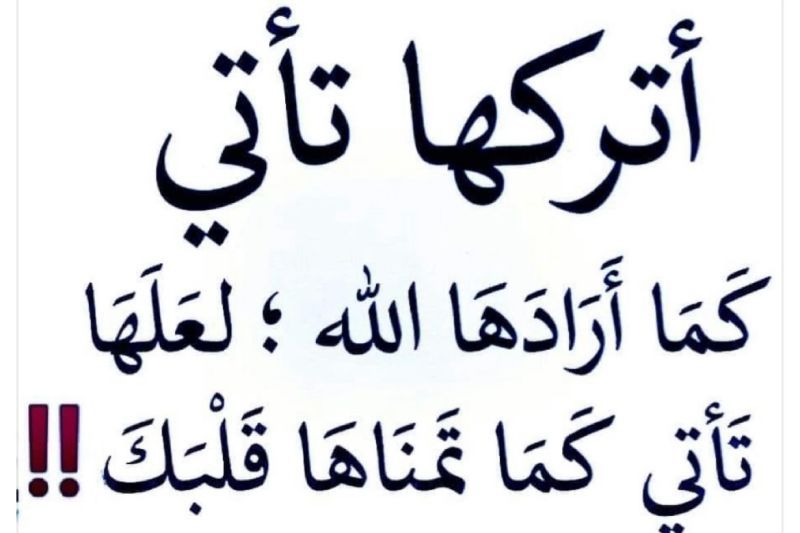 أتركها تأتي
كَمَا أَرَادَهَا الله ؛ لعَلَهَا
تَأتي كَمَا تَمنَاهَا قَلْبَكَ !!